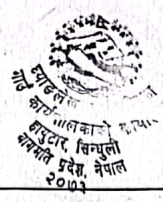 गाउँ कार्यपालिकाको कार्यालय
झापुटार, सिन्धुली
बागमती प्रदेश, नेपाल
२०७३